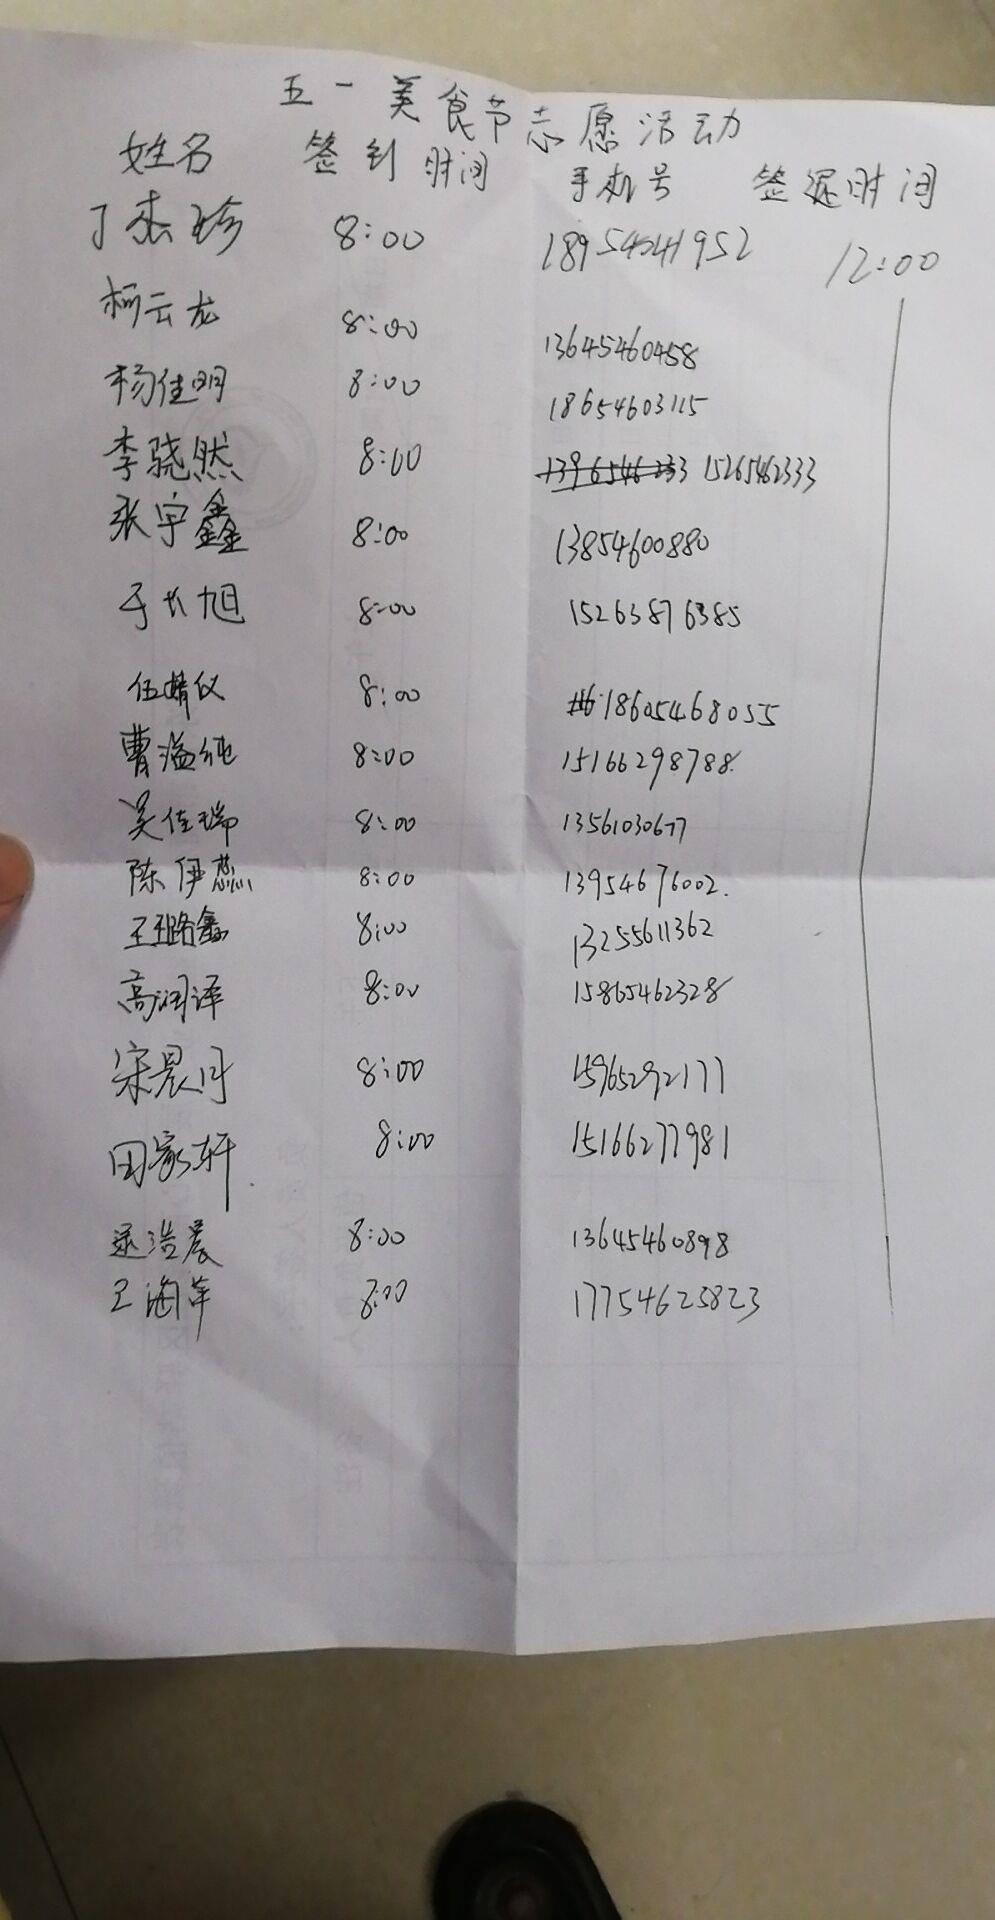 五一美食节志愿活动
姓名 签到时间 手机号 签退时间
丁杰珍 8:00 18954041952 12:00
柯云龙 8:00 13645460458
杨佳明 8:00 18654603115
李骁然 8:00 1396546233 15265462333
张宇鑫 8:00 13854600880
于长旭 8:00 15263876385
伍婧仪 8:00 18605468055
曹溢纯 8:00 15166298788
吴佳瑞 8:00 13561030677
陈伊蕊 8:00 13954676002.
王璐鑫 8:00 13255611362
高润泽 8:00 15865462328
宋晨丹 8:00 15965292177
田家轩 8:00 15166277981
浩晨 8:00 13645460898
王海萍 8:00 17754623823